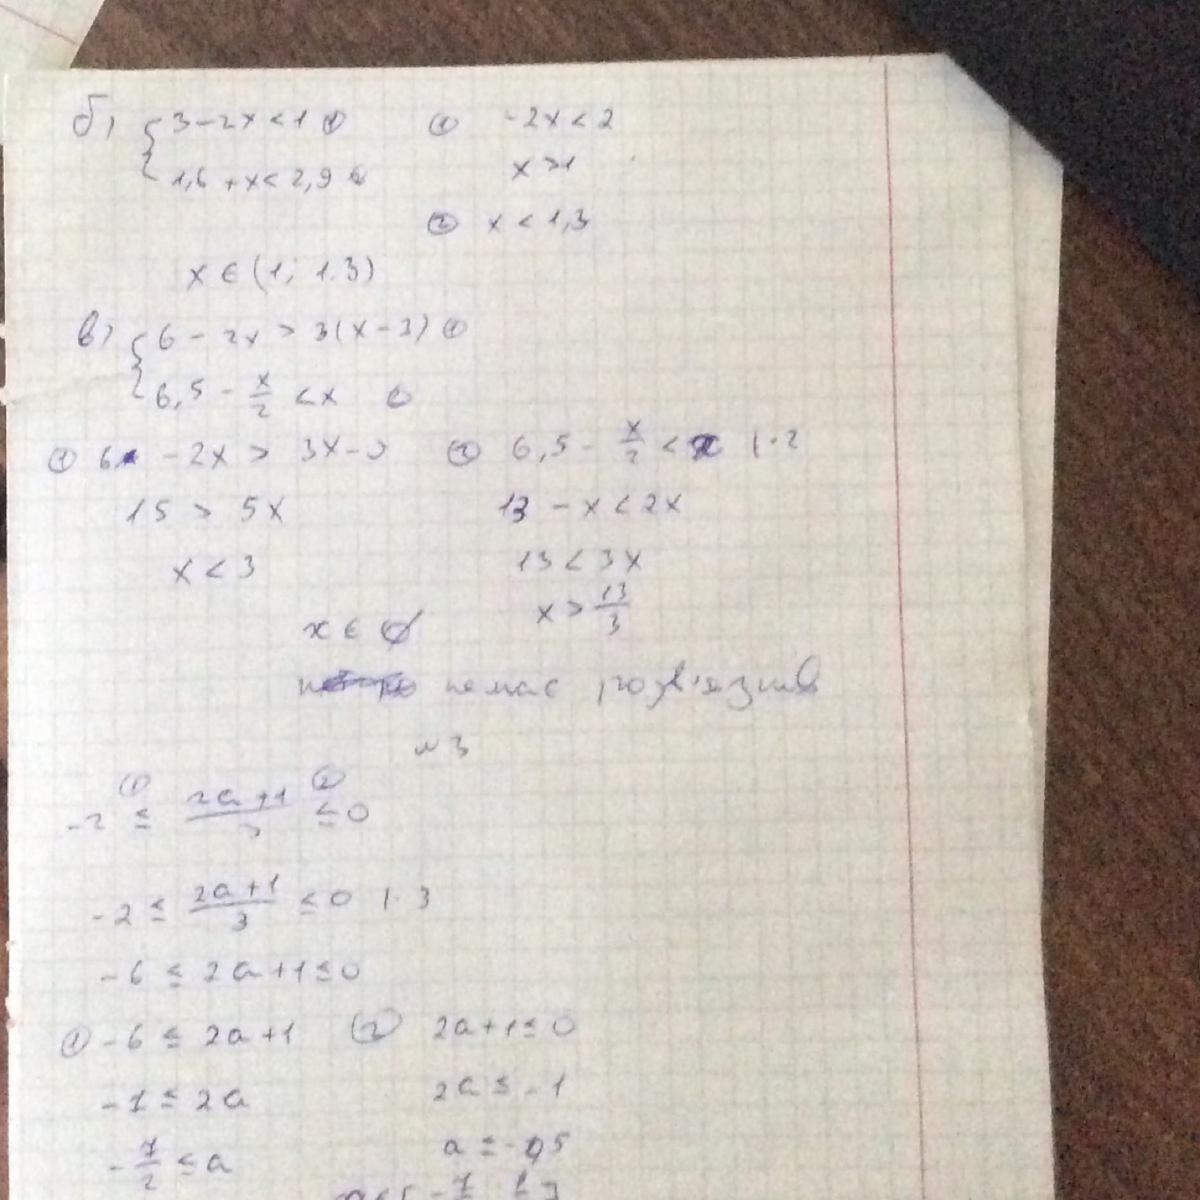 б) { 3 - 2x < 1 ①   ① -2x < 2
1,6 + x < 2,9 ②   x > 1
② x < 1,3
x ∈ (1; 1.3)
в) { 6 - 2x > 3(x - 3) ①
6,5 - x/2 < x ②
① 6 - 2x > 3x - 9   ② 6,5 - x/2 < x | · 2
15 > 5x   13 - x < 2x
x < 3   13 < 3x
x > 13/3
x ∈ ∅
немає розв'язків
№ 3
-2 ≤ ① (2a + 1)/3 ≤ ② 0
-2 ≤ (2a + 1)/3 ≤ 0 | · 3
-6 ≤ 2a + 1 ≤ 0
① -6 ≤ 2a + 1   ② 2a + 1 ≤ 0
-7 ≤ 2a   2a ≤ -1
-7/2 ≤ a   a ≤ -0,5